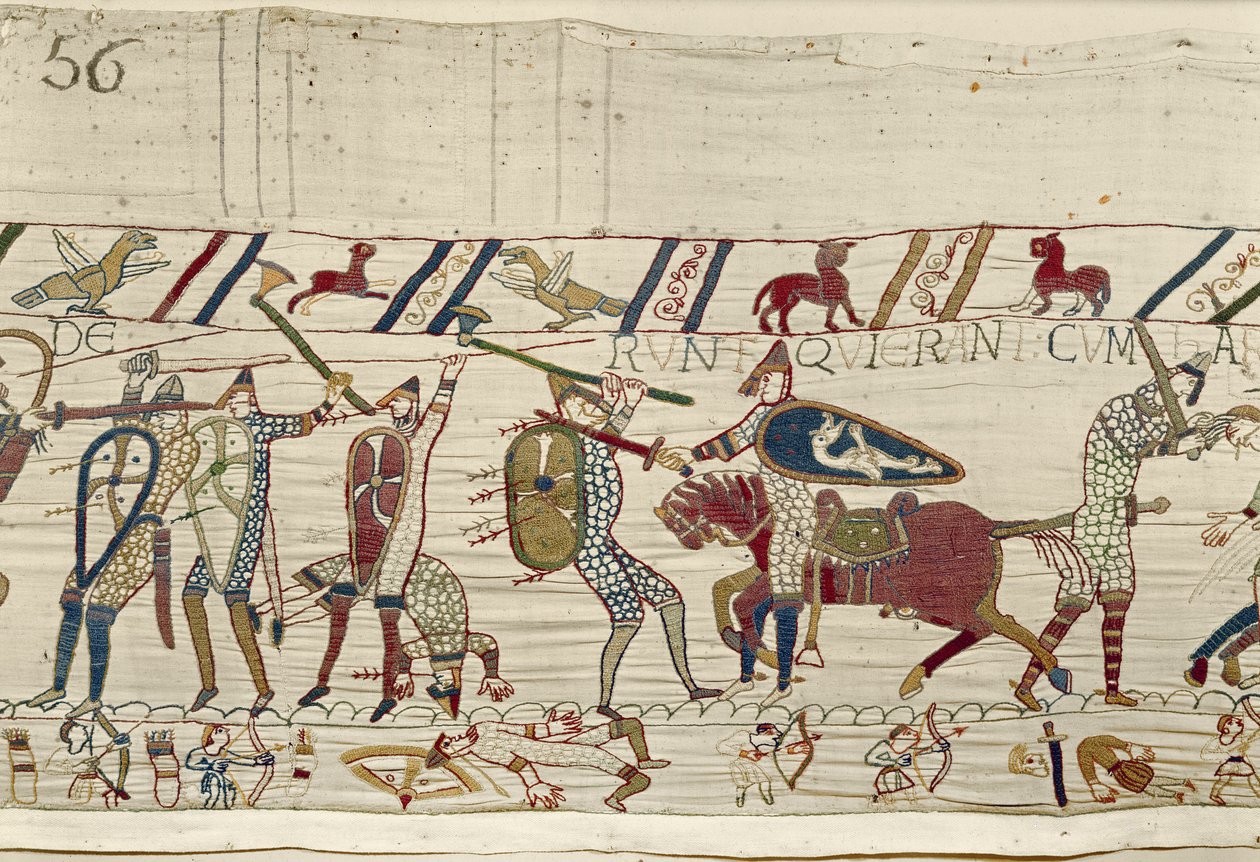 56
DE RVNT QVIERANT: CVM hA